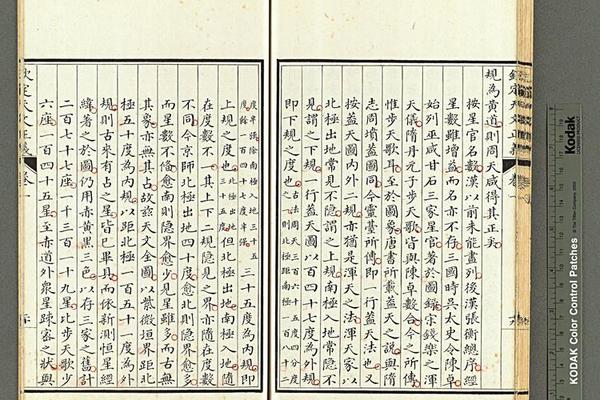 欽定天文正義
卷一
規為黃道則周天咸得其正矣
按星官名數漢以前未能畫列後漢張衡總序經
星數雖增益而名亦不存三國時吳太史令陳卓
始列巫咸甘石三家星官著於圖錄宋錢樂之渾
天儀隋丹元子步天歌皆與陳卓數合今所傳
惟步天歌耳至於圖唐書所載蓋天之說與隋
志同墳蓋圖同今靈臺所傳即一行蓋天法也又
按蓋天圖內外二規亦猶是渾天之法渾天家以
北極出地常見不隱謂之上規南極入地常隱不
見謂之下規一行蓋天圖以百四十七度為外規
即下規之度也古法周天三百六十五度四分度之一則北極距南極一百八十二
度半強除南極入地三十五度餘百四十七度半強三十五度為內規即
上規之度也北極出地三十五度但北極出地南極入地隨
在度數不一其上下二規隱見之界亦隨在度數
不同今京師北極出地四十度愈北則隱界愈多
而星數不備愈南則隱界愈少見星雖多而古無
其象亦無其占故茲天文全圖以紫微垣界距北
極五十度為內規以距北極一百五十一度為外
規則古來有占之星皆已畢具而依新測恒星經
緯著之於圖仍用赤黃黑三色以存三家之舊計
二百七十七座一千三百一十九星比步天歌少
六座一百四十五星至赤道外眾星疎密之狀與
欽定天文正義
卷一
Kodak
KODAK Color Control Patches